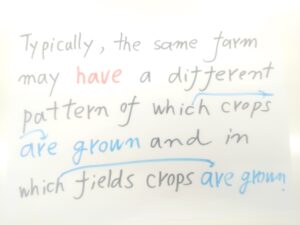 Typically, the same farm
may have a different
pattern of which crops
are grown and in
which fields crops are grown